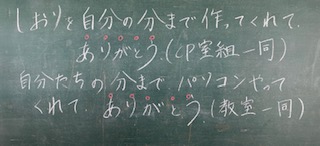 しおりを自分の分まで作ってくれて、
ありがとう。(CP室組一同)
自分たちの分まで、パソコンやって
くれて、ありがとう。(教室一同)